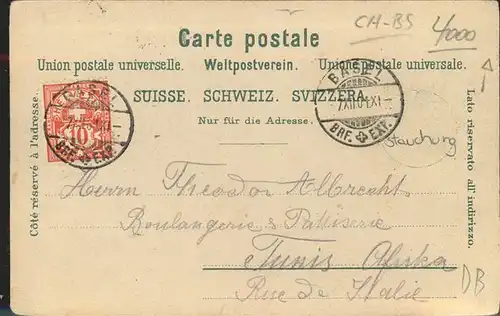 CH-BS
4000
Carte postale
Union postale universelle. Weltpostverein. Unione postale universale.
SUISSE. SCHWEIZ. SVIZZERA.
Nur für die Adresse.
Côté réservé à l'adresse
Lato riservato all indirizzo.
BASEL
BRF. EXP.
10
BASEL
7.XII.04.XI-
BRF. EXP.
Stauchung
Herrn Theodor Albrecht
Boulangerie & Patisserie
Tunis Afrika
Rue de Italie
DB